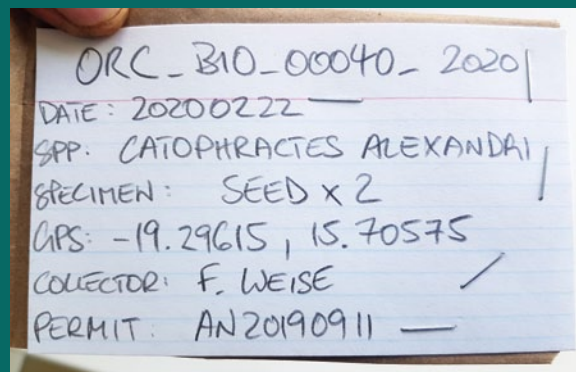 ORC_BIO_00040_2020
DATE: 20200222
SPP: CATOPHRACTES ALEXANDRI
SPECIMEN: SEED x 2
GPS: -19.29615, 15.70575
COLLECTOR: F. WEISE
PERMIT: AN20190911